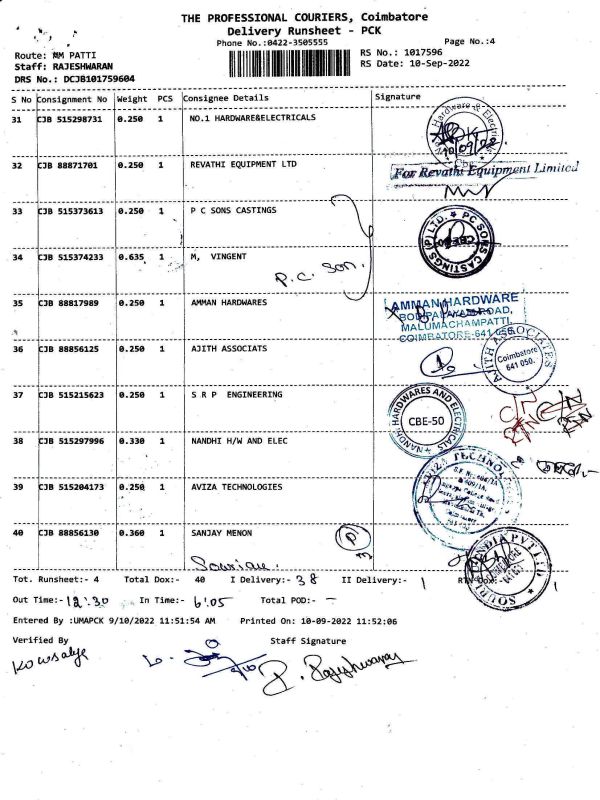 THE PROFESSIONAL COURIERS, Coimbatore
Delivery Runsheet - PCK
Phone No.:0422-3505555
Page No.:4
Route: MM PATTI
RS No.: 1017596
Staff: RAJESHWARAN
RS Date: 10-Sep-2022
DRS No.: DCJB101759604
S No Consignment No Weight PCS Consignee Details Signature
31 CJB 515298731 0.250 1 NO.1 HARDWARE&ELECTRICALS
Hardware & Electricals
10/09/22
32 CJB 88871701 0.250 1 REVATHI EQUIPMENT LTD
For Revathi Equipment Limited
33 CJB 515373613 0.250 1 P C SONS CASTINGS
PC SONS CASTINGS (P) LTD.
CBE-50
34 CJB 515374233 0.635 1 M, VINGENT
P.C. Son.
35 CJB 88817989 0.250 1 AMMAN HARDWARES
AMMAN HARDWARE
BODIPALAYAM ROAD,
MALUMACHAMPATTI,
COIMBATORE-641 050.
36 CJB 88856125 0.250 1 AJITH ASSOCIATS
AJITH ASSOCIATES
Coimbatore
641 050.
37 CJB 515215623 0.250 1 S R P ENGINEERING
38 CJB 515297996 0.330 1 NANDHI H/W AND ELEC
NANDHI HARDWARES AND ELECTRICALS
CBE-50
39 CJB 515204173 0.250 1 AVIZA TECHNOLOGIES
AVIZA TECHNOLOGIES
40 CJB 88856130 0.360 1 SANJAY MENON
P
Tot. Runsheet:- 4 Total Dox:- 40 I Delivery:- 38 II Delivery:- 1
Out Time:- 12:30 In Time:- 6:05 Total POD:-
Entered By :UMAPCK 9/10/2022 11:51:54 AM Printed On: 10-09-2022 11:52:06
Verified By Staff Signature
Kowsalya
P. Rajeshwaran